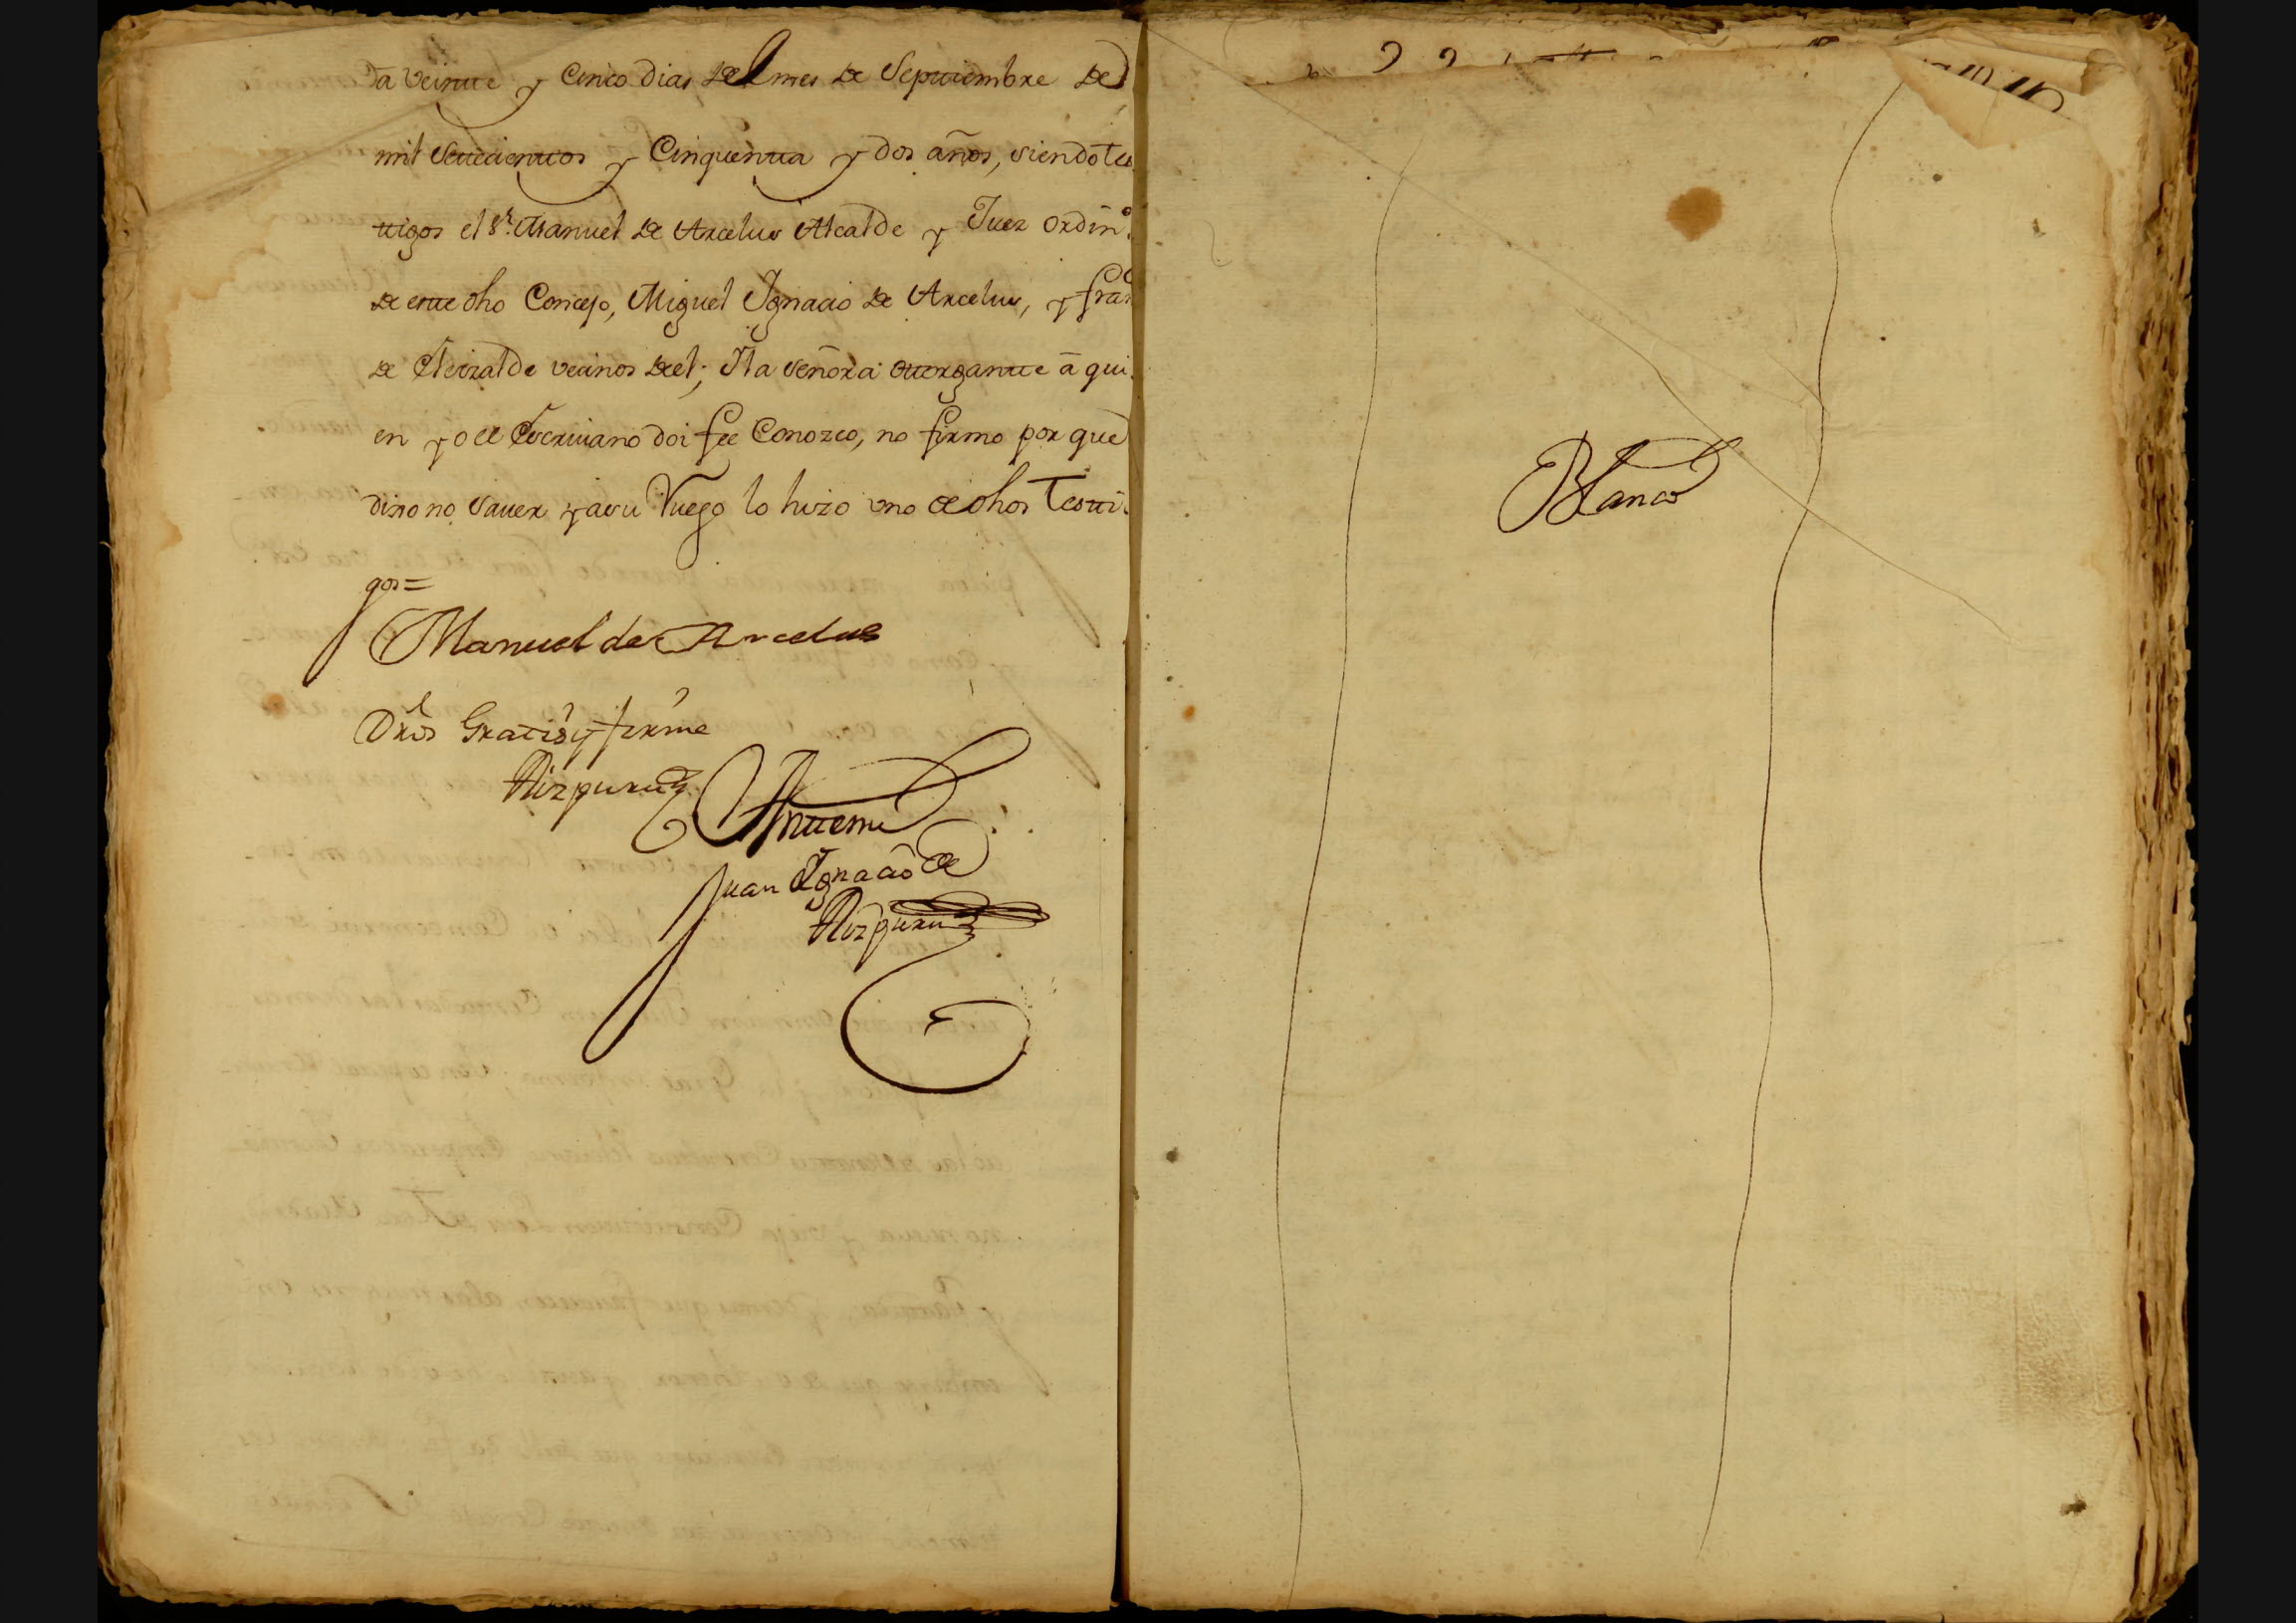 da veinte y Cinco dias del mes de Septiembre de
mil Setecientos y Cinquenta y dos años, siendo tes
tigos el Sr. Manuel de Arcelus Alcalde y Juez ordinº
de este dho Concejo, Miguel Ignacio de Arcelus, y fran
de Eleizalde vecinos del; Ila señora otorgante â qui
en yo el Escrivano doi fee Conozco, no firmo por que
dixo no saver y asu Ruego lo hizo uno de dhos Testi
gos=
Manuel de Arcelus
Dros Gratis y firme
Aizpuru
Ante mi
Juan Ignacio de
Aizpuru
Blanco